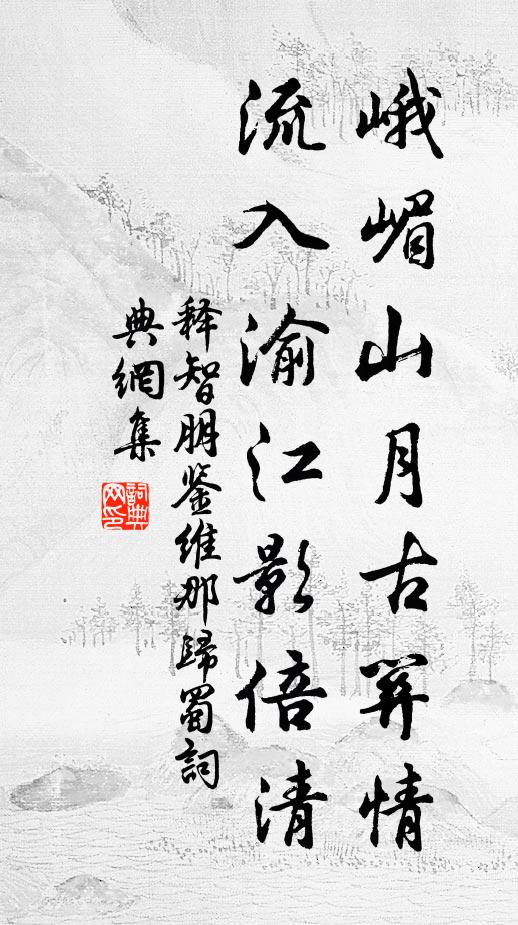 峨嵋山月古羿情
流入渝江影倍清
释智朋鉴维那歸蜀詞
典網集
詞典网印